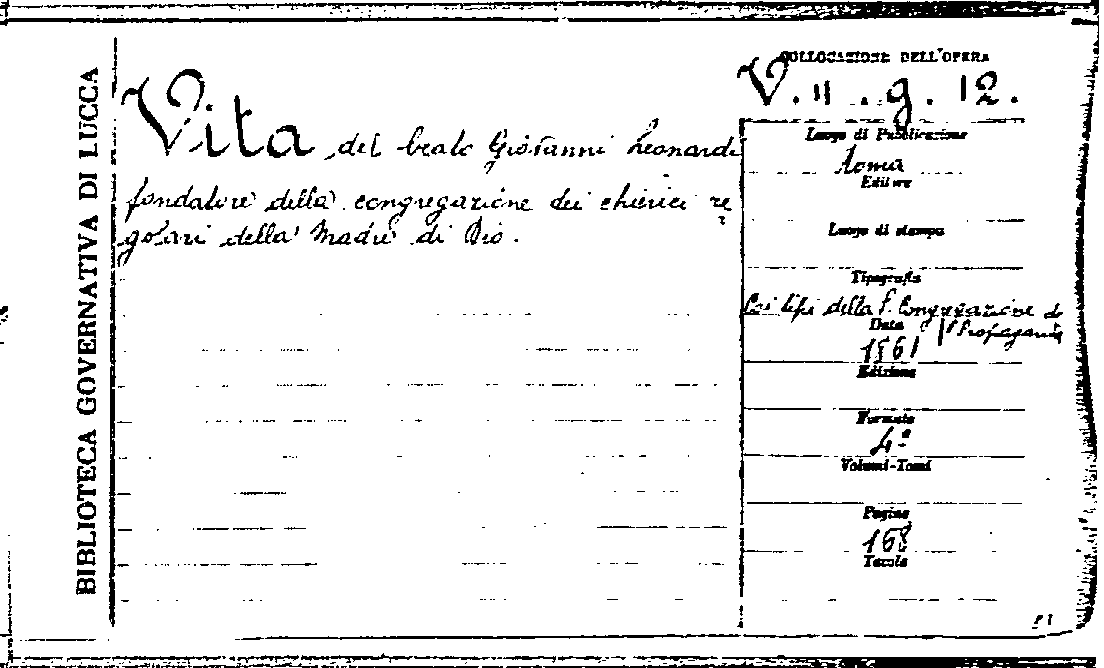 BIBLIOTECA GOVERNATIVA DI LUCCA
Vita del beato Giovanni Leonardi
fondatore della congregazione dei chierici re
golari della Madre di Dio.
COLLOCAZIONE DELL'OPERA
V. II. g. 12.
Luogo di Pubblicazione
Roma
Editore
Luogo di stampa
Tipografia
Coi tipi della S. Congregazione di
Propaganda
Data
1861
Edizione
Formato
4º
Volumi-Tomi
Pagine
168
Tavole